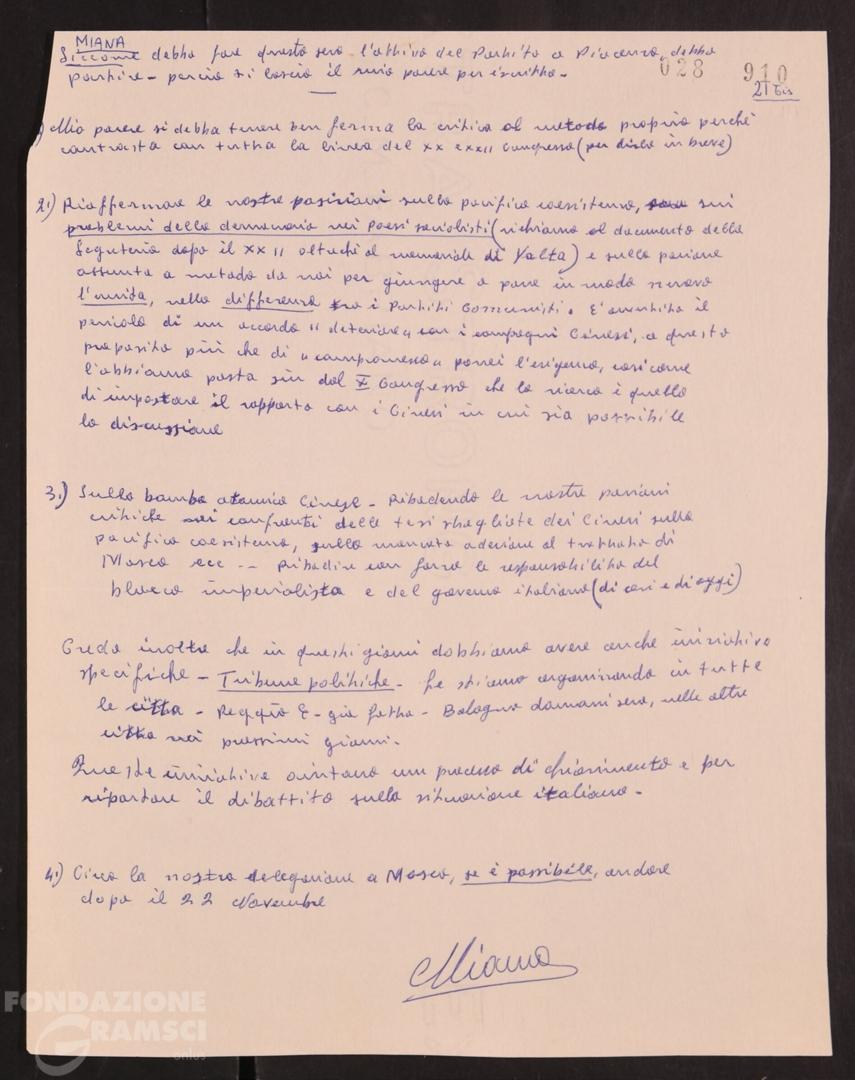 MIANA
Siccome debbo fare questa sera l'attivo del Partito a Piacenza, debbo
partire - perciò vi lascio il mio parere per iscritto -
028 910
21 bis
1) Mio parere si debba tenere ben ferma la critica al metodo proprio perché
contrasta con tutta la linea del XX e XXII Congresso (per dirla in breve)
2.) Riaffermare le nostre posizioni sulla pacifica coesistenza, sui
problemi della democrazia nei Paesi socialisti (richiamo al documento della
Segreteria dopo il XXII oltreché al memoriale di Yalta) e sulla posizione
assunta a metodo da noi per giungere a porre in modo nuovo
l'unità, nella differenza tra i Partiti Comunisti. E' avvertito il
pericolo di un accordo "deteriore" con i compagni Cinesi, a questo
proposito più che di "compromesso" porrei l'esigenza, così come
l'abbiamo posta sin dal X Congresso che la ricerca è quella
di impostare il rapporto con i Cinesi in cui sia possibile
la discussione
3.) Sulla bomba atomica Cinese - Ribadendo le nostre posizioni
critiche nei confronti delle tesi sbagliate dei Cinesi sulla
pacifica coesistenza, sulla mancata adesione al trattato di
Mosca ecc -- Ribadire con forza le responsabilità del
blocco imperialista e del governo italiano (di ieri e di oggi)
Credo inoltre che in questi giorni dobbiamo avere anche iniziative
specifiche - Tribune politiche - Le stiamo organizzando in tutte
le città - Reggio E - già fatta - Bologna domani sera, nelle altre
città nei prossimi giorni.
Queste iniziative aiutano un processo di chiarimento e per
riportare il dibattito sulla situazione italiana -
4.) Circa la nostra delegazione a Mosca, se è possibile, andare
dopo il 22 Novembre
Miana
FONDAZIONE
GRAMSCI
onlus